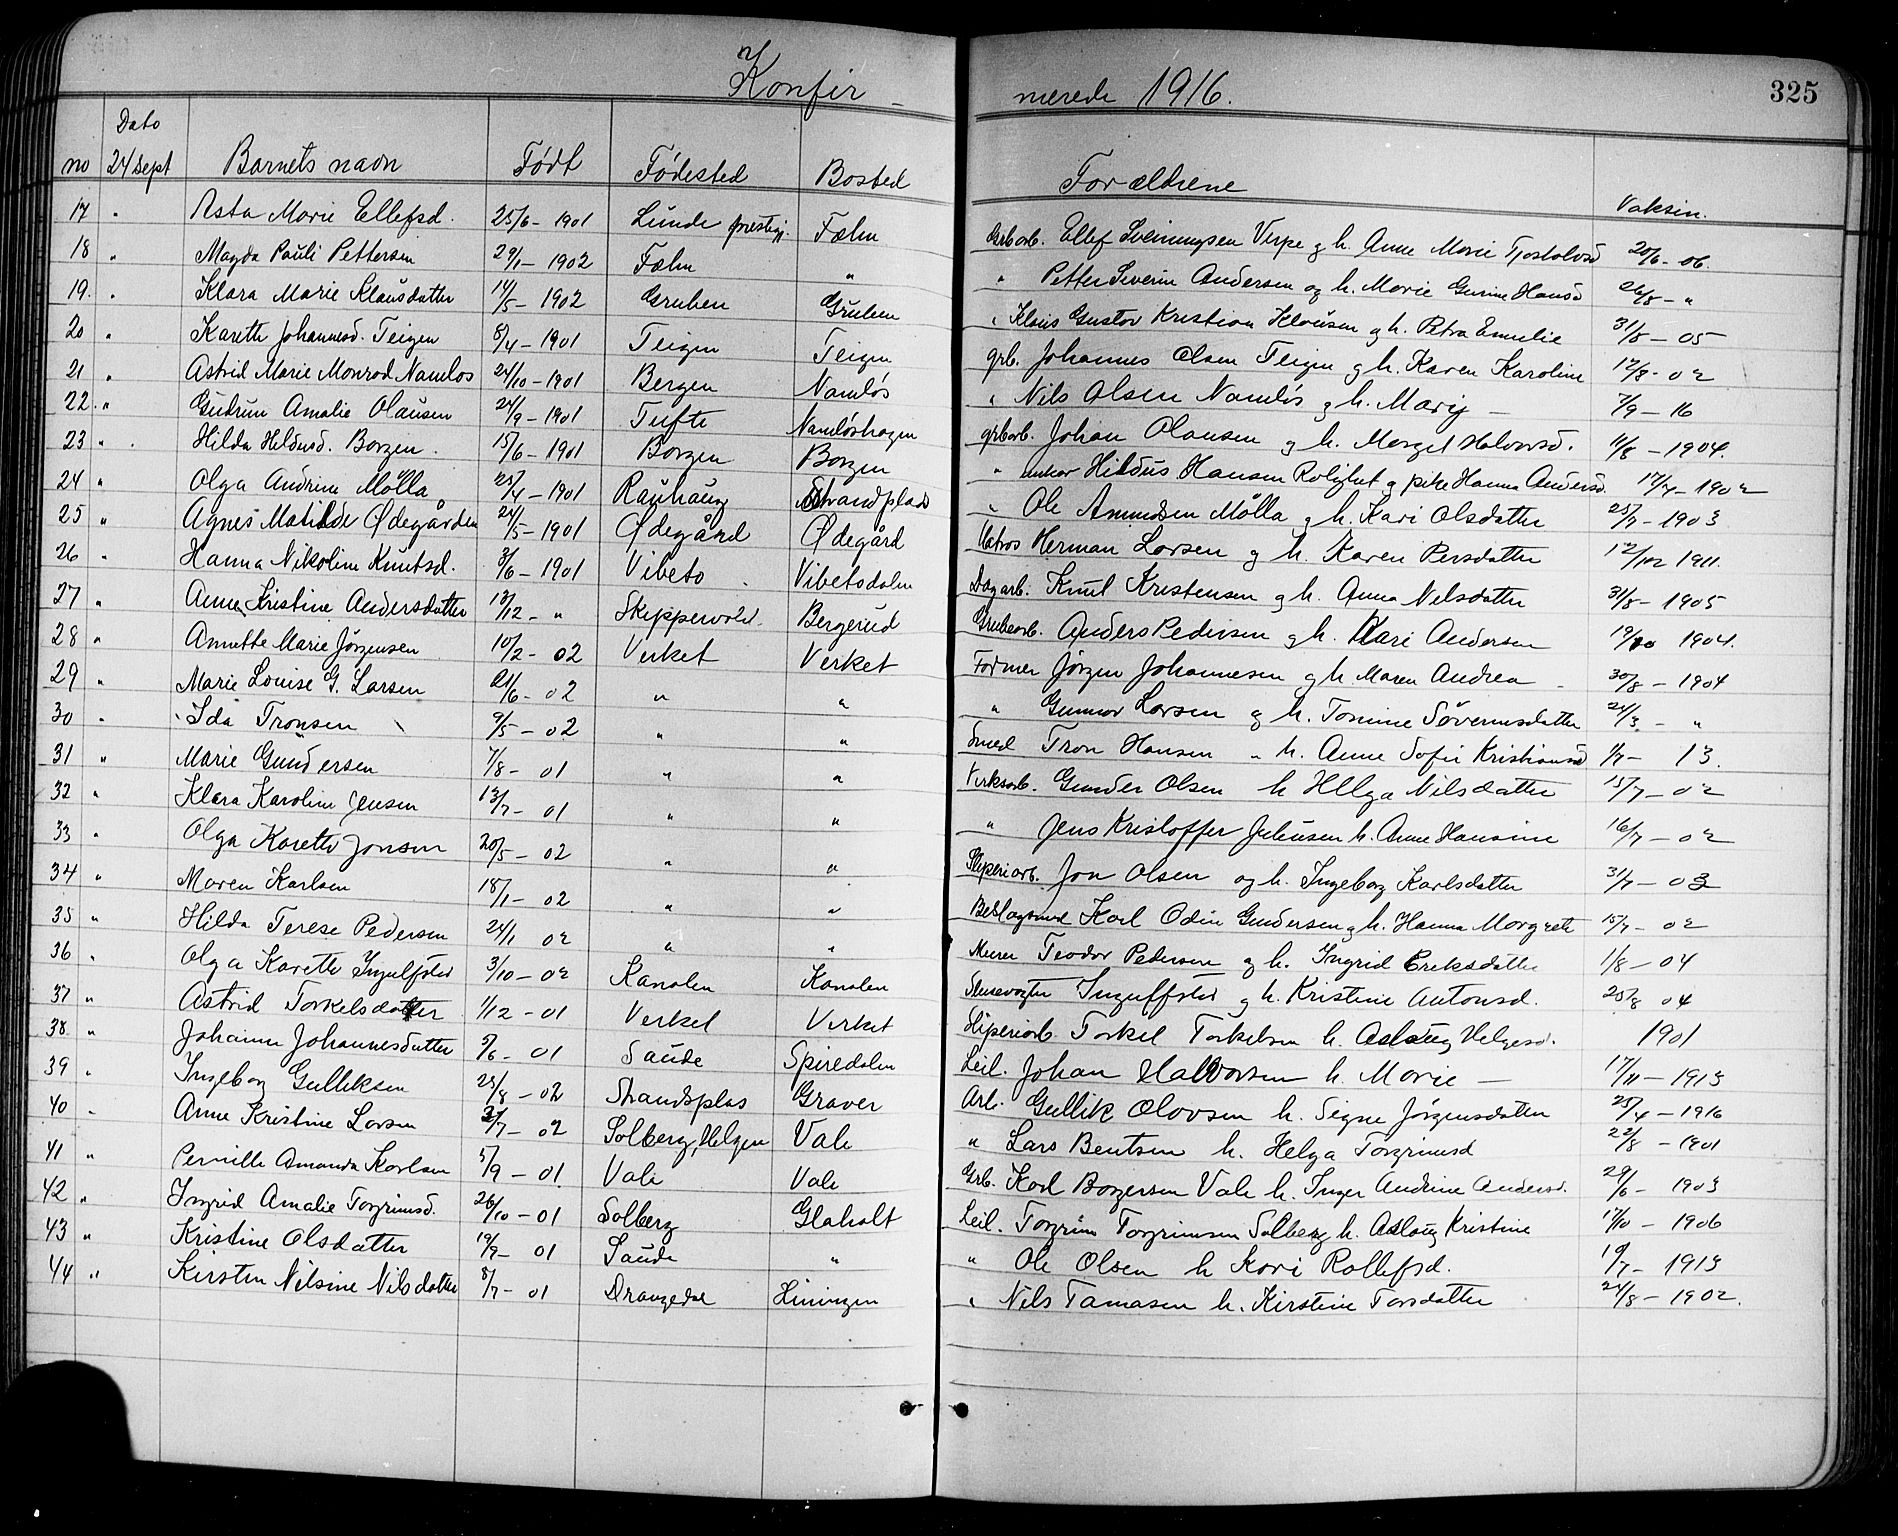 Konfir - merede 1916. 325
no Dato 24 sept Barnets navn Født Fødested Bosted Forældrene Vaksin.
17 " Asta Marie Ellefsd. 25/6 - 1901 Lunde prestegj. Fæhn Grbarb. Ellef Sveinungsen Verpe og h. Anne Marie Tjostolvsd 20/6 - 06.
18 " Magda Pauli Pettersen 29/1 - 1902 Fæhn " " Petter Severin Andersen og h. Marie Gurine Hansd 26/8 - "
19. " Klara Marie Klausdatter 14/5 - 1902 Gruben Gruben " Klaus Gustav Kristian Klausen og h. Petra Emelie 31/8 - 05
20 " Karethe Johannesd. Teigen 8/4 - 1901 Teigen Teigen grb. Johannes Olsen Teigen og h. Karen Karoline 12/8 - 02
21 " Astrid Marie Monrad Namløs 24/10 - 1901 Bergen Namløs " Nils Olsen Namløs og h. Marij — 7/9 - 16
22. " Gudrun Amalie Olausen 24/9 - 1901 Tufte Namløshagen grbarb. Johan Olausen og h. Margit Halvorsd. 11/8 - 1904.
23 " Hilda Hildusd. Borgen. 15/6 - 1901 Borgen Borgen " unkar Hildus Hansen Rolighet og pike Hanna Andersd. 17/7 - 1902
24 " Olga Andrine Mölla 25/4 - 1901 Rauhaug Strandplads " Ole Amundsen Mölla og h. Kari Olsdatter 25/7 - 1903.
25 " Agnes Matilde Ødegården 24/5 - 1901 Ødegård Ødegård Matros Herman Larsen og h. Karen Persdatter 12/12 1911.
26 " Hanna Nikoline Knutsd. 3/6 - 1901 Vibeto Vibetodalen Dagarb. Knut Kristensen og h. Anna Nilsdatter 31/8 - 1905
27 " Anne Kristine Andersdatter 18/12 - " Skippervold. Bergerud Grubearb. Anders Pedersen og h. Kari Andersen 19/10 1904.
28 " Annette Marie Jørgensen 10/2 - 02 Verket Verket Former Jørgen Johannesen og h Maren Andrea - 30/8 - 1904
29 " Marie Louise G. Larsen 21/6 - 02 " " " Gunnar Larsen og h. Tomine Søvernsdatter 24/3 - "
30 " Ida Tronsen 9/5 - 02 " " Smed Tron Hansen " h. Anne Sofie Kristiansd 1/7 - 13.
31 " Marie Gundersen 7/8 - 01 " " Verksarb. Gunder Olsen h Helga Nilsdatter 15/7 - 02
32 " Klara Karoline Jensen 13/7 - 01 " " " Jens Kristoffer Juliusen h. Anne Hansine 16/7 - 02
33 " Olga Karethe Jonsen 20/5 - 02 " " Sliperiarb. Jon Olsen og h. Ingeborg Karlsdatter 31/7 - 03
34 " Maren Karlsen 18/1 - 02 " " Beslagsmed Karl Odin Gundersen og h. Hanna Margrete 15/7 - 02
35 " Hilda Terese Pedersen 24/1 02 " " Murer Teodor Pedersen og h. Ingrid Eriksdatter 1/8 - 04
36 " Olga Karethe Ingulfsld 3/10 - 02 Kanalen Kanalen Slusevogter Ingulfsld og h. Kristine Antonsd. 25/8 04
37 " Astrid Torkelsdatter 1/12 - 01 Verket Verket Sliperiarb. Torkel Torkelsen h. Aslaug Helgesd. 1901
38. " Johanne Johannesdatter 5/6 - 01 Saude Spiredalen Leil. Johan Halvorsen h. Marie — 17/11 - 1913
39 " Ingeborg Gulliksen 25/8 - 02 Strandsplas Graver Arb. Gullik Olavsen h. Signe Jørgensdatter 25/4 - 1916
40 " Anne Kristine Larsen 3/7 - 02 Solberg, Helgen Vale " Lars Bentsen h. Helga Torgrimsd 22/8 - 1901
41 " Pernille Amanda Karlsen 5/9 - 01. Vale Vale Grb. Karl Borgersen Vale h. Inger Andrine Andersd. 29/6 - 1903
42 " Ingrid Amalie Torgrimsd. 26/10 - 01 Solberg Glaholt Leil. Torgrim Torgrimsen Solberg h. Aslaug Kristine 17/10 - 1906
43 " Kristine Olsdatter 19/9 - 01 Saude " " Ole Olsen h Kari Rollefsd. 19/7 - 1913
44 " Kirsten Nilsine Nilsdatter 8/7 - 01 Drangedal Hiningen " Nils Tamasen h. Kirstine Torsdatter 24/8 - 1902.